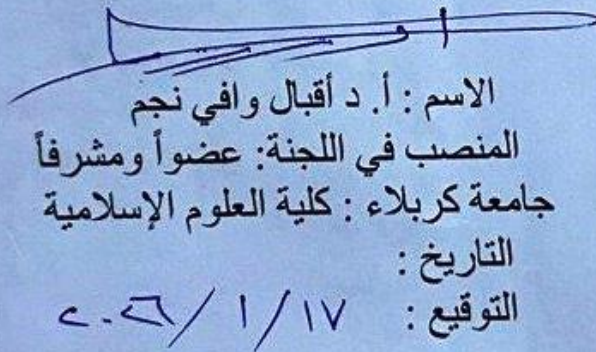 الاسم : أ. د أقبال وافي نجم
المنصب في اللجنة: عضواً ومشرفاً
جامعة كربلاء : كلية العلوم الإسلامية
التاريخ :
التوقيع : ٢٠٢٦/١/١٧